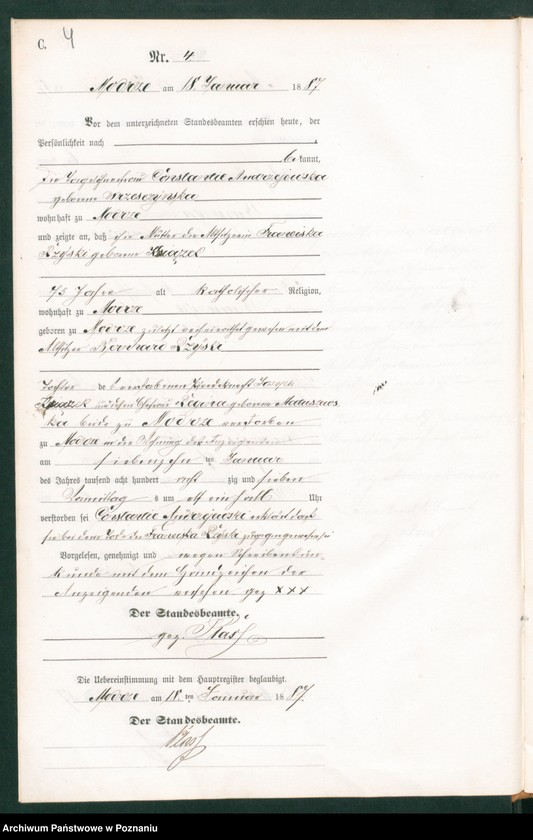 C. 4
Nr. 4
Modrze am 18 Januar 1887
Vor dem unterzeichneten Standesbeamten erschien heute, der
Persönlichkeit nach
bekannt,
die Constantie Andrzejewska
geborene
wohnhaft zu Modrze
und zeigte an, daß ihre Mutter die Altsitzerin Franziska
geborene
75 Jahre alt katholischer Religion,
wohnhaft zu Modrze
geboren zu Modrze zuletzt verheirathet gewesen mit dem
Altsitzer
Tochter des verstorbenen Pferdeknecht Joseph
und dessen Ehefrau Regina geborene
beide zu Modrze verstorben
zu Modrze in der Wohnung der Anzeigenden
am siebenzehn ten Januar
des Jahres tausend acht hundert acht zig und sieben
mittag s um elf einhalb Uhr
verstorben sei Constantie erklärt daß
sie bei dem Tode der Franziska zugegen gewesen sei
Vorgelesen, genehmigt und wegen Schreibensun
kunde mit dem Handzeichen der
Anzeigenden versehen gez XXX
Der Standesbeamte.
gez.
Die Uebereinstimmung mit dem Hauptregister beglaubigt.
Modrze am 18. ten Januar 1887.
Der Standesbeamte.
Archiwum Państwowe w Poznaniu